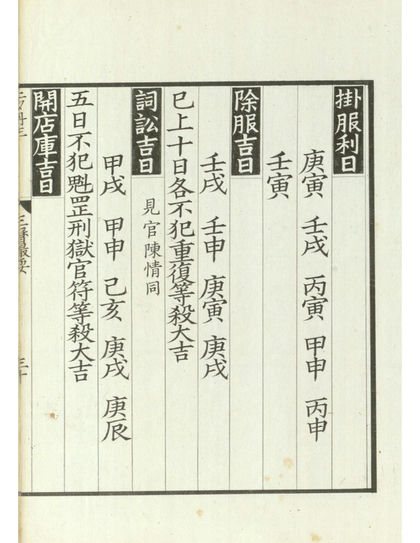 掛服利日
庚寅 壬戌 丙寅 甲申 丙申
壬寅
除服吉日
壬戌 壬申 庚寅 庚戌
巳上十日各不犯重復等殺大吉
詞訟吉日 見官陳情同
甲戌 甲申 己亥 庚戌 庚辰
五日不犯魁罡刑獄官符等殺大吉
開店庫吉日